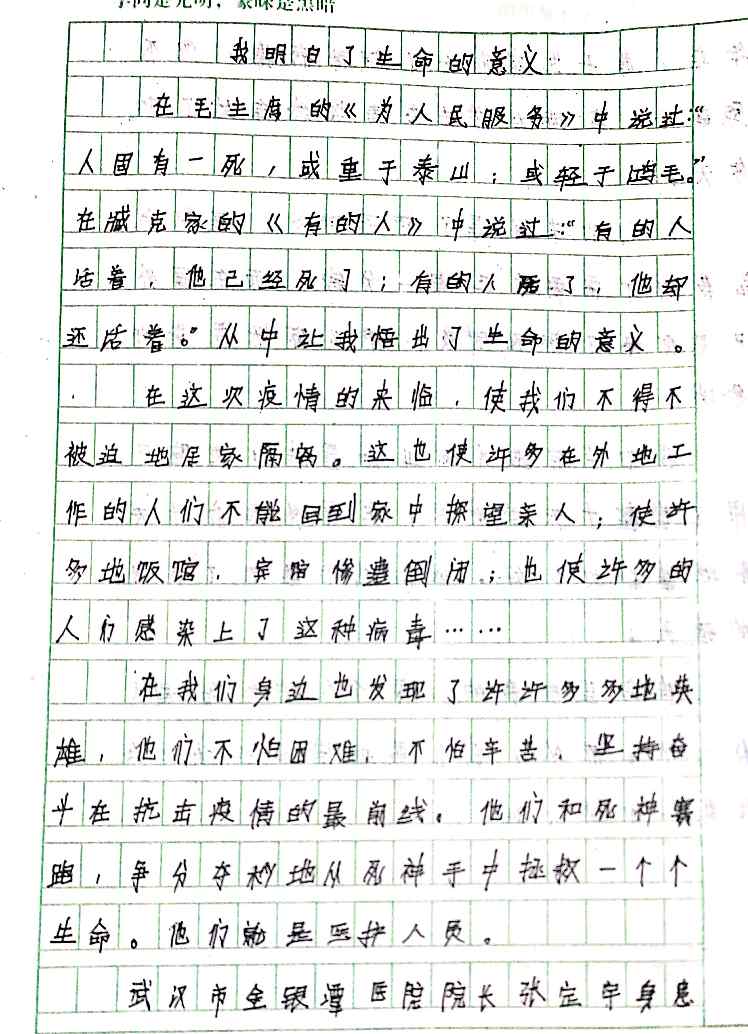 学问是光明，蒙昧是黑暗
我明白了生命的意义
在毛主席的《为人民服务》中说过：“
人固有一死，或重于泰山；或轻于鸿毛。”
在臧克家的《有的人》中说过：“有的人
活着，他已经死了；有的人死了，他却
还活着。”从中让我悟出了生命的意义。
在这次疫情的来临，使我们不得不
被迫地居家隔离。这也使许多在外地工
作的人们不能回到家中探望亲人；使许
多地饭馆，宾馆惨遭倒闭；也使许多的
人们感染上了这种病毒……
在我们身边也发现了许许多多地英
雄，他们不怕困难，不怕辛苦，坚持奋
斗在抗击疫情的最前线。他们和死神赛
跑，争分夺秒地从死神手中拯救一个个
生命。他们就是医护人员。
武汉市金银潭医院院长张定宇身患